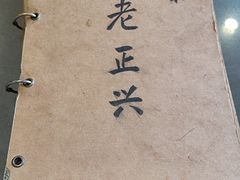 老正兴